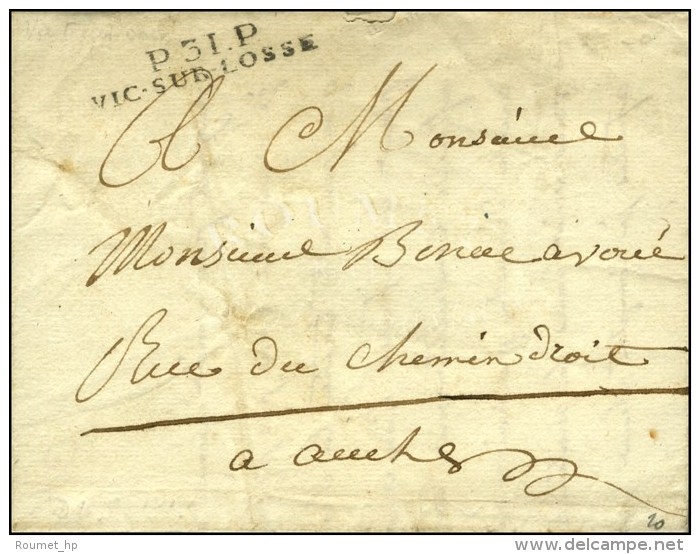 P31.P
VIC-SUR-LOSSE
A Monsieur
Monsieur avoué
Rue du Chemin droit
a auch
20
Roumet_hp
delcampe.net